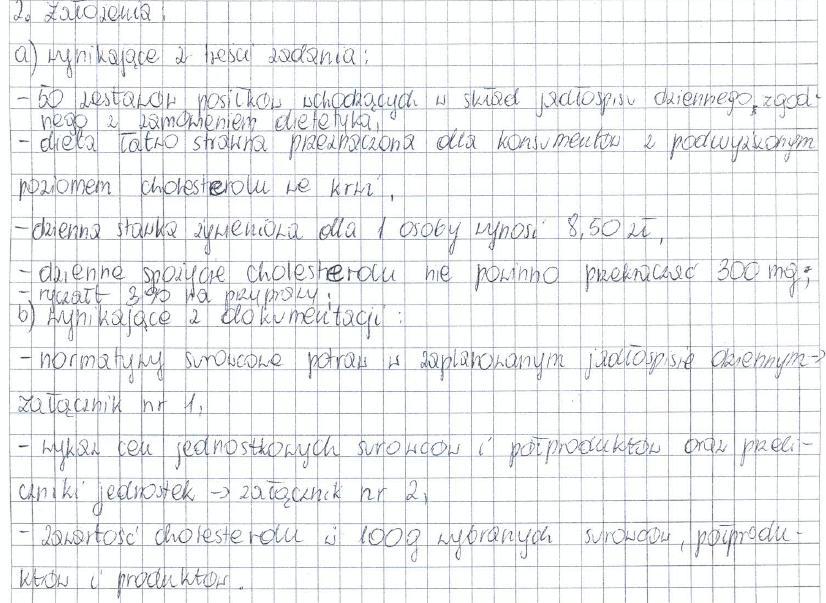 2. Założenia:
a) wynikające z treści zadania:
- 50 zestawów posiłków wchodzących w skład jadłospisu dziennego, zgod-
nego z zamówieniem dietetyka,
- dieta łatwo strawna przeznaczona dla konsumentów z podwyższonym
poziomem cholesterolu we krwi,
- dzienna stawka żywieniowa dla 1 osoby wynosi 8,50 zł,
- dzienne spożycie cholesterolu nie powinno przekraczać 300 mg;
- ryczałt 3% na przyprawy;
b) wynikające z dokumentacji:
- normatywy surowcowe potraw w zaplanowanym jadłospisie dziennym →
załącznik nr 1,
- wykaz cen jednostkowych surowców i półproduktów oraz przeli-
czniki jednostek → załącznik nr 2,
- zawartość cholesterolu w 100g wybranych surowców, półprodu-
któw i produktów.